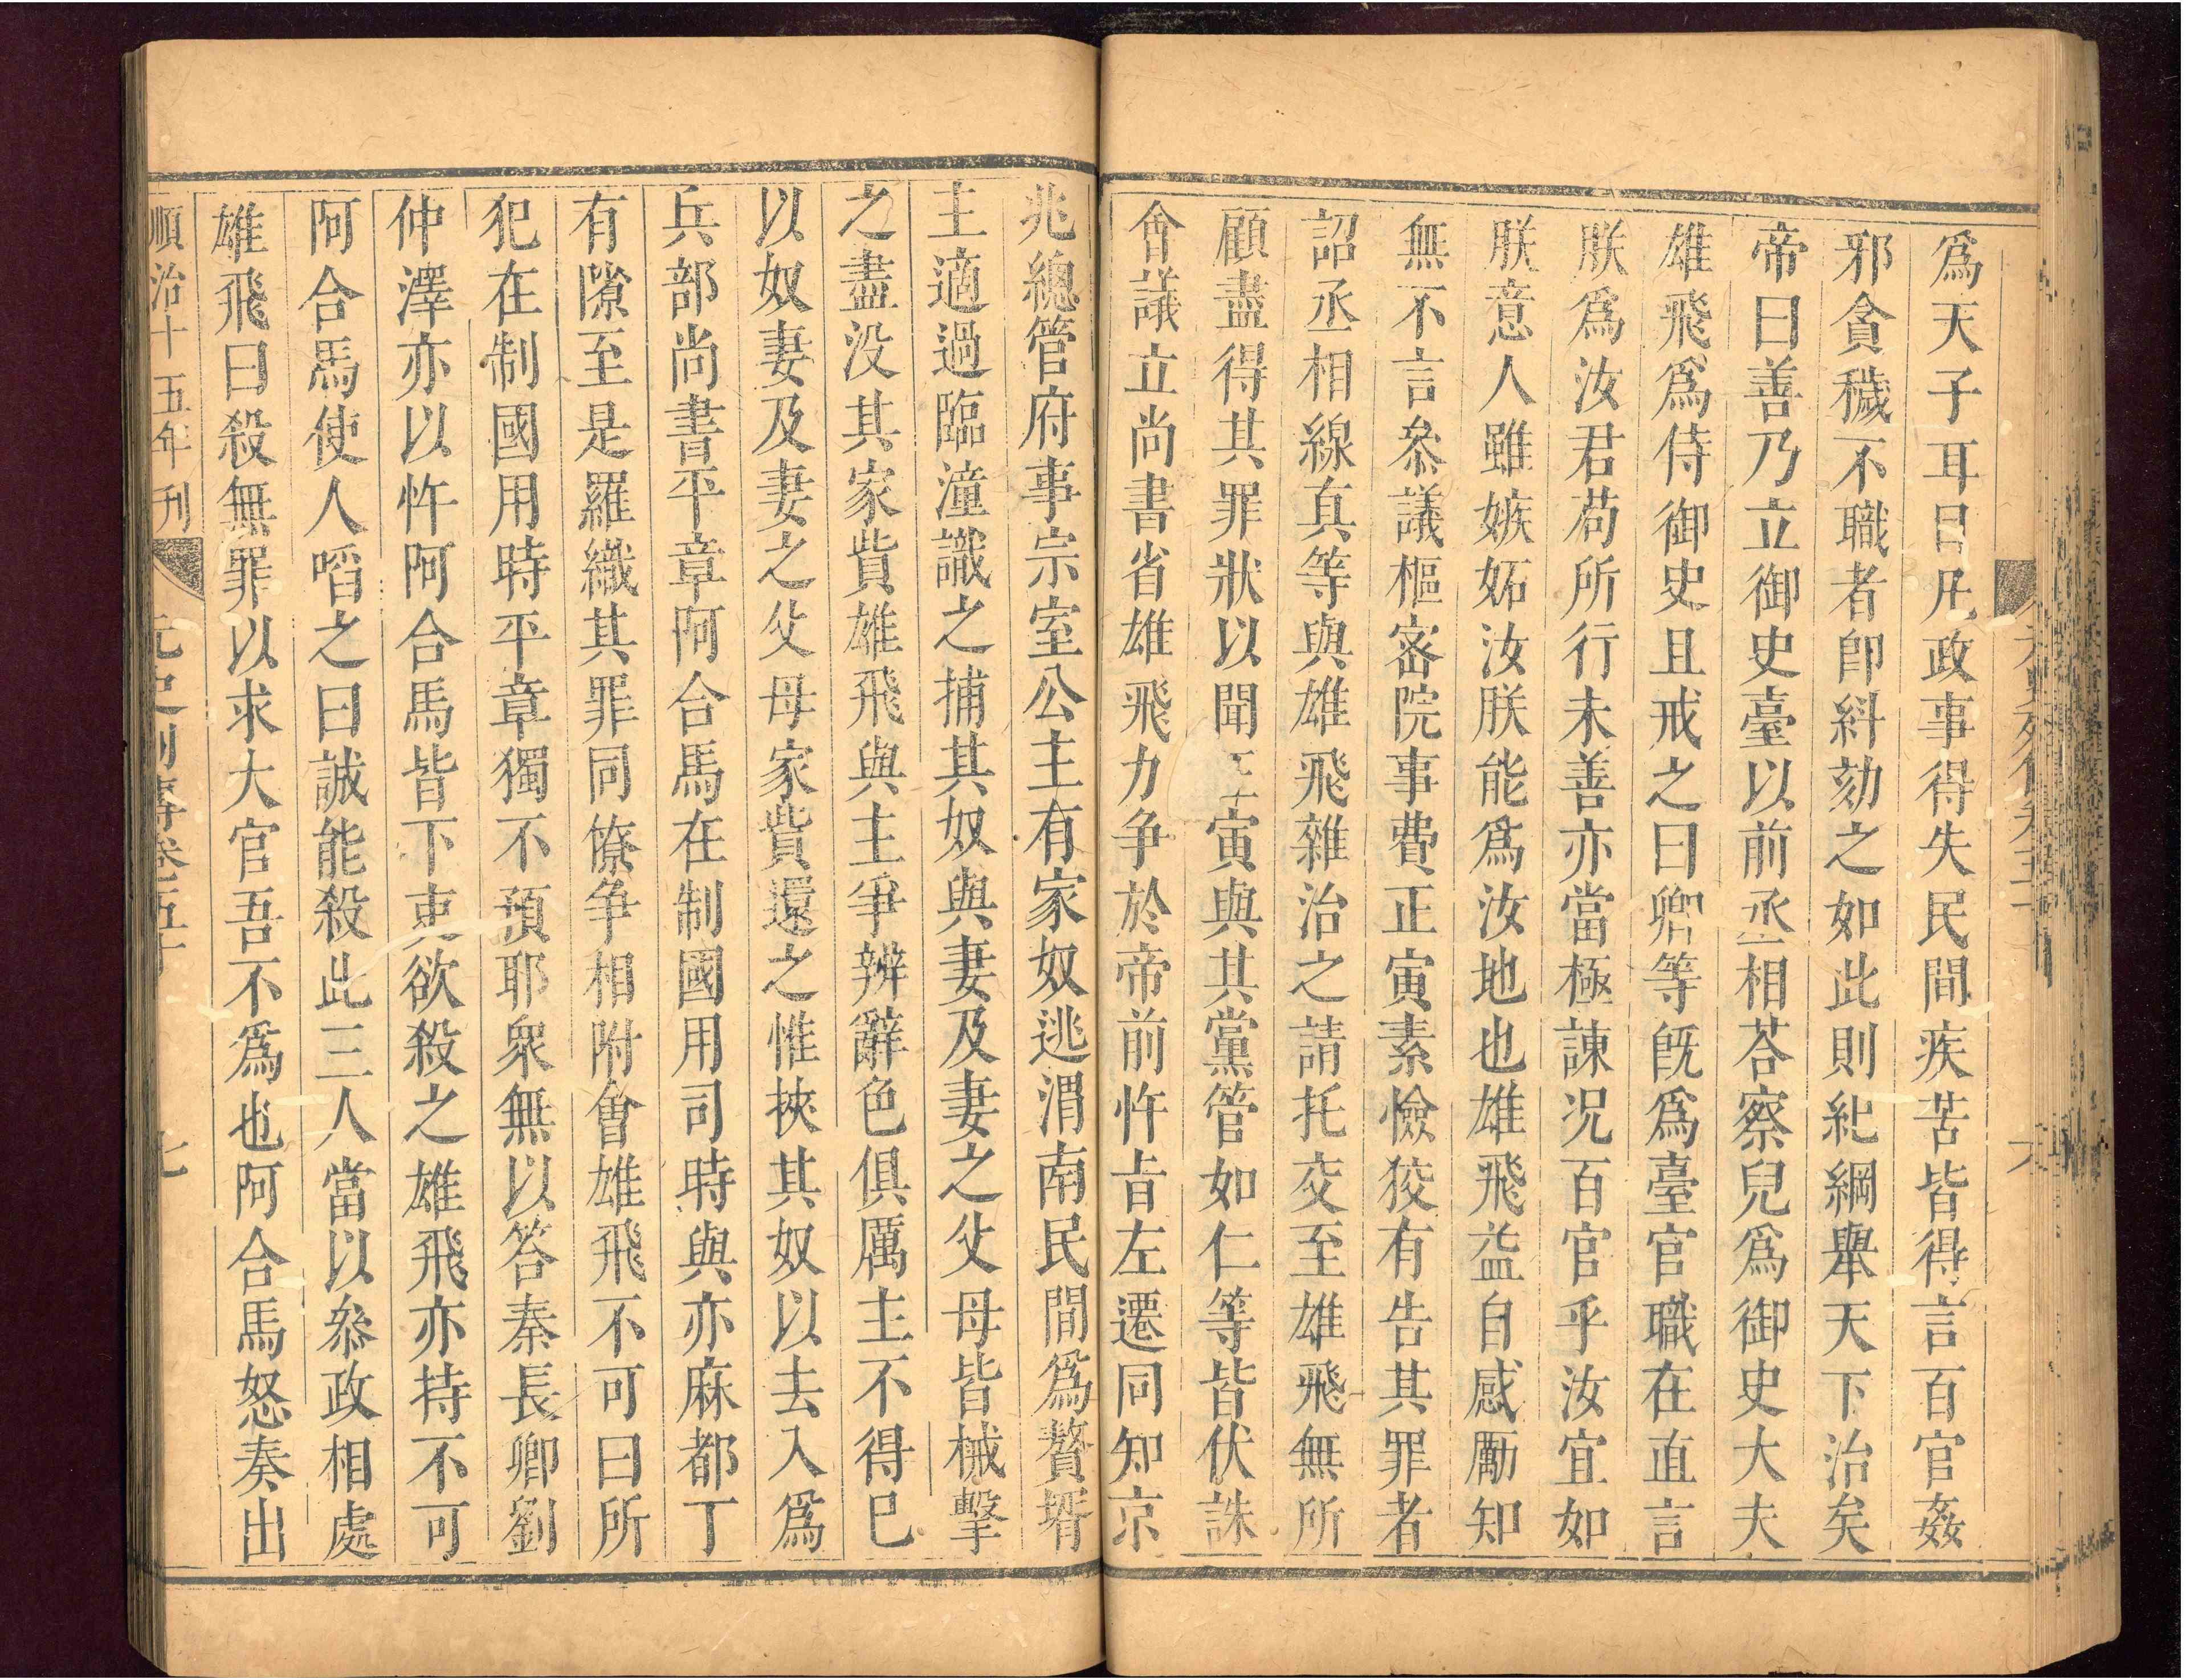 爲天子耳目凡政事得失民間疾苦皆得言百官姦
邪貪穢不職者卽糾劾之如此則紀綱舉天下治矣
帝曰善乃立御史臺以前丞相荅察兒爲御史大夫
雄飛爲侍御史且戒之曰卿等旣爲臺官職在直言
朕爲汝君苟所行未善亦當極諫況百官乎汝宜如
朕意人雖嫉妬汝朕能爲汝地也雄飛益自感勵知
無不言叅議樞密院事費正寅素憸狡有告其罪者
詔丞相線真等與雄飛雜治之請托交至雄飛無所
顧盡得其罪狀以聞正寅與其黨管如仁等皆伏誅
會議立尚書省雄飛力争於帝前忤旨左遷同知京
兆總管府事宗室公主有家奴逃渭南民間爲贅壻
主適過臨潼識之捕其奴與妻及妻之父母皆械擊
之盡没其家貲雄飛與主爭辨辭色俱厲主不得已
以奴妻及妻之父母家貲還之惟挾其奴以去入爲
兵部尚書平章阿合馬在制國用司時與亦麻都丁
有隙至是羅織其罪同僚争相附會雄飛不可曰所
犯在制國用時平章獨不預耶衆無以答秦長卿劉
仲澤亦以忤阿合馬皆下吏欲殺之雄飛亦持不可
阿合馬使人啗之曰誠能殺此三人當以叅政相處
雄飛曰殺無罪以求大官吾不爲也阿合馬怒奏出
順治十五年刊 元史列傳卷五十 七